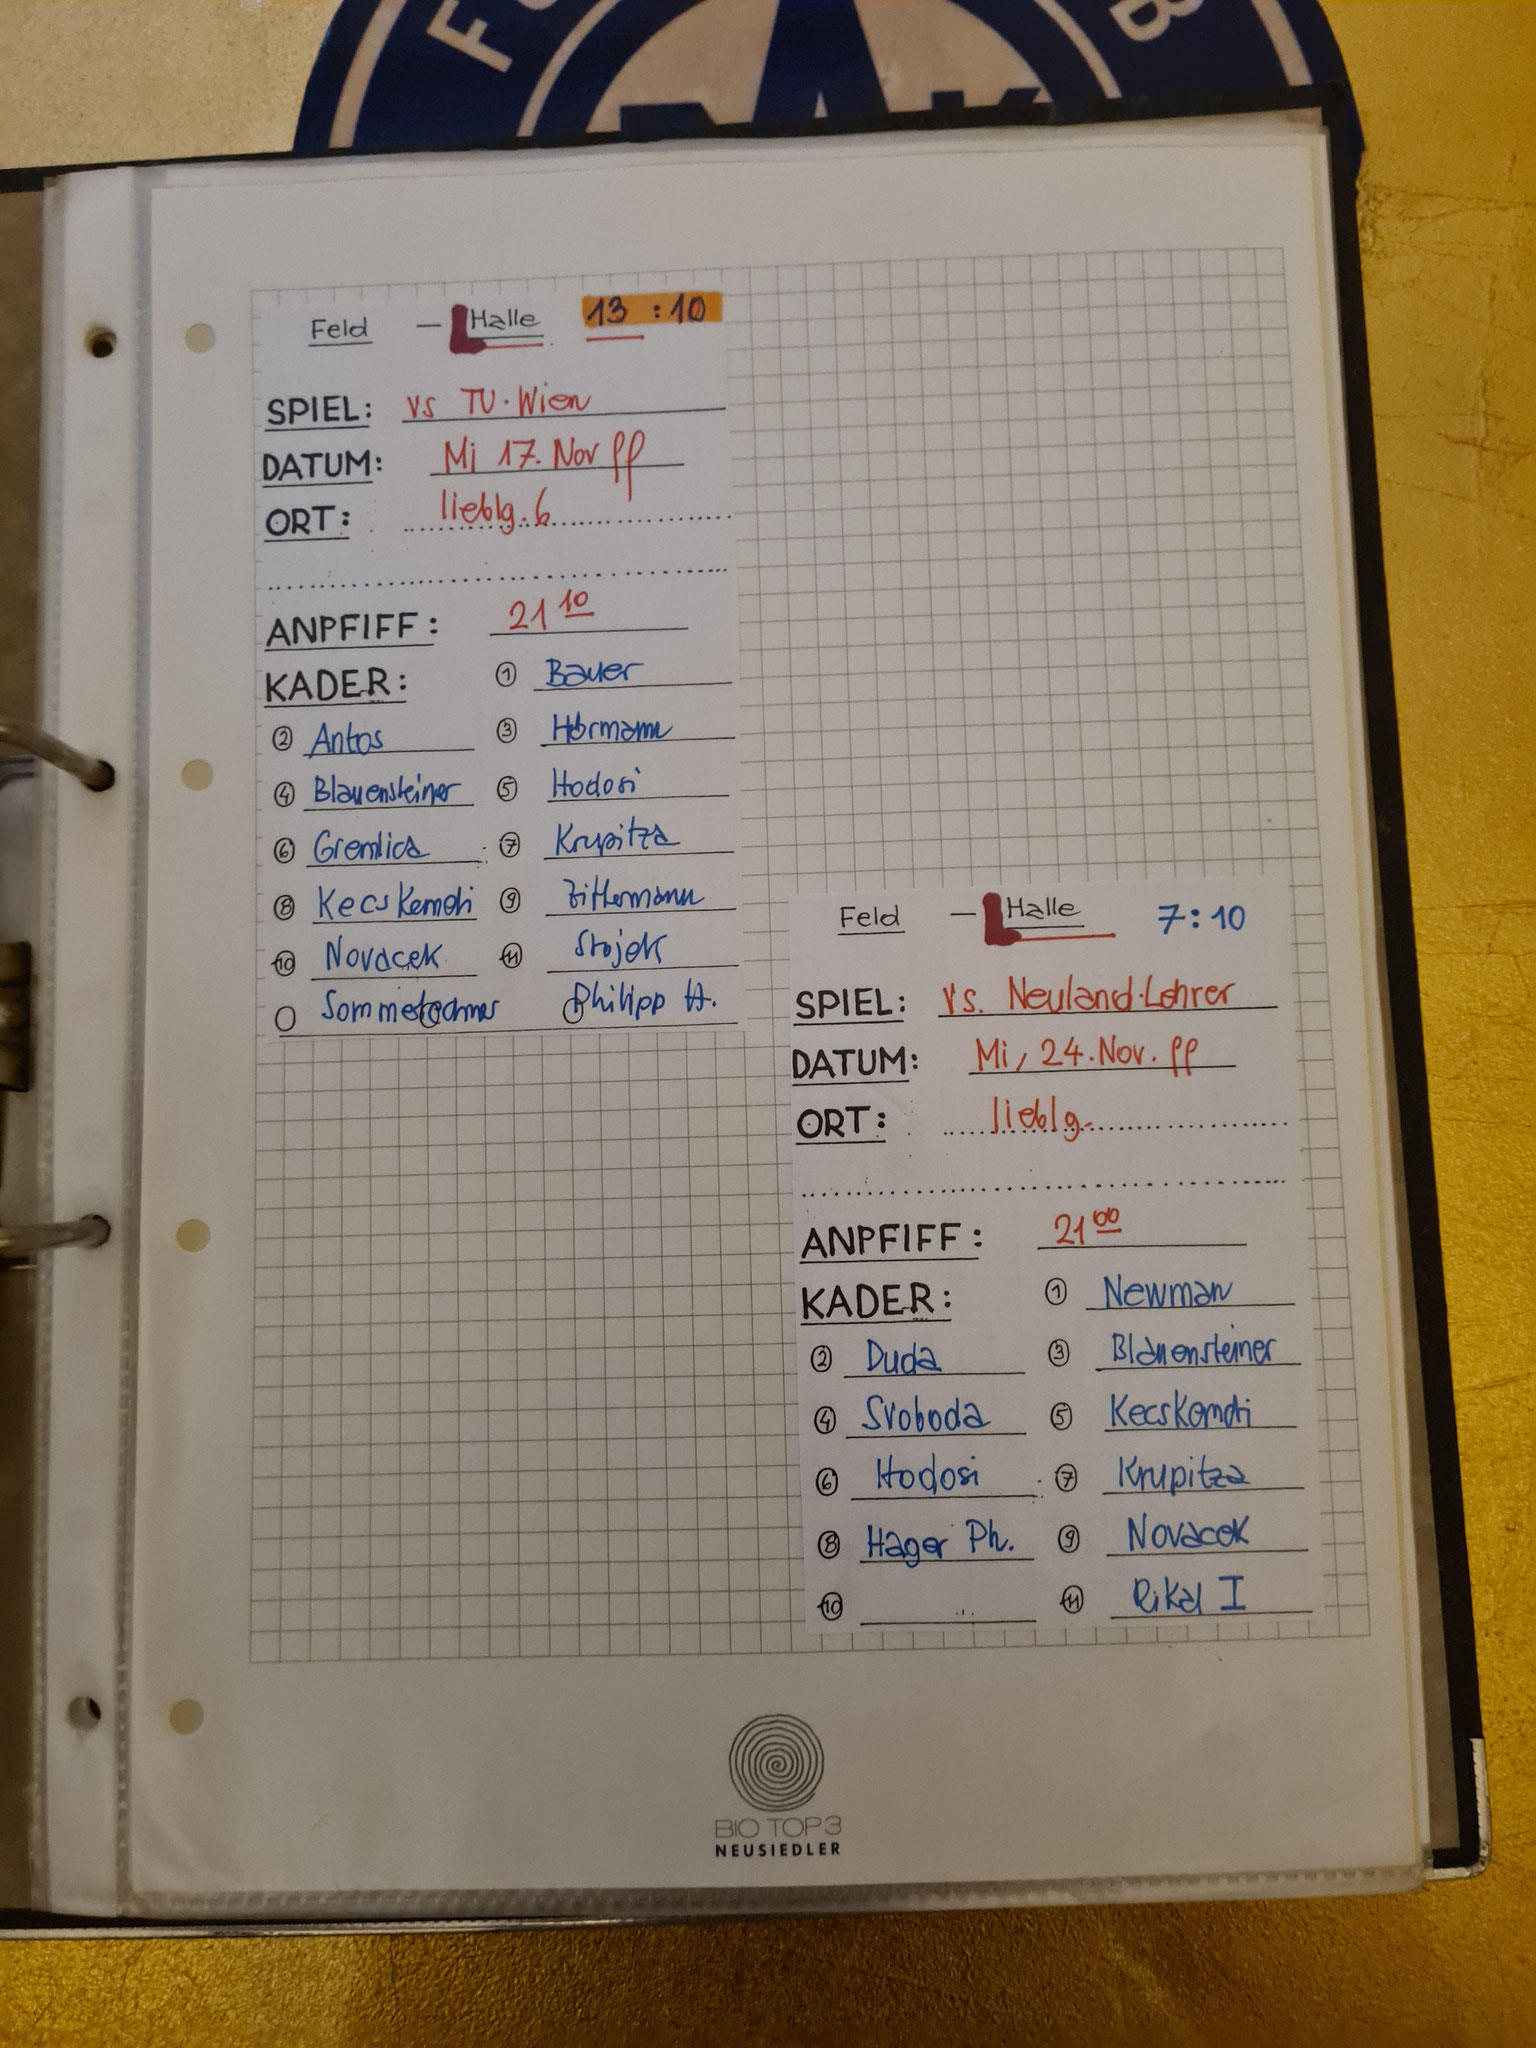 Feld – Halle 13 : 10
SPIEL: vs TU. Wien
DATUM: Mi 17. Nov 99
ORT: lieblg. 6
ANPFIFF: 21 10
KADER: ① Bauer
② Antos ③ Hörmann
④ Blauensteiner ⑤ Hodosi
⑥ Gremlica ⑦ Krupitza
⑧ Kecskemeti ⑨ Zittermann
⑩ Novacek ⑪ Stojek
Philipp H.
Feld – Halle 7:10
SPIEL: vs. Neuland-Lehrer
DATUM: Mi, 24. Nov. 99
ORT: lieblg.
ANPFIFF: 21 00
KADER: ① Newman
② Duda ③ Blauensteiner
④ Svoboda ⑤ Kecskemeti
⑥ Hodosi ⑦ Krupitza
⑧ Hager Ph. ⑨ Novacek
⑩ ⑪ Rikal I
BIO TOP 3
NEUSIEDLER